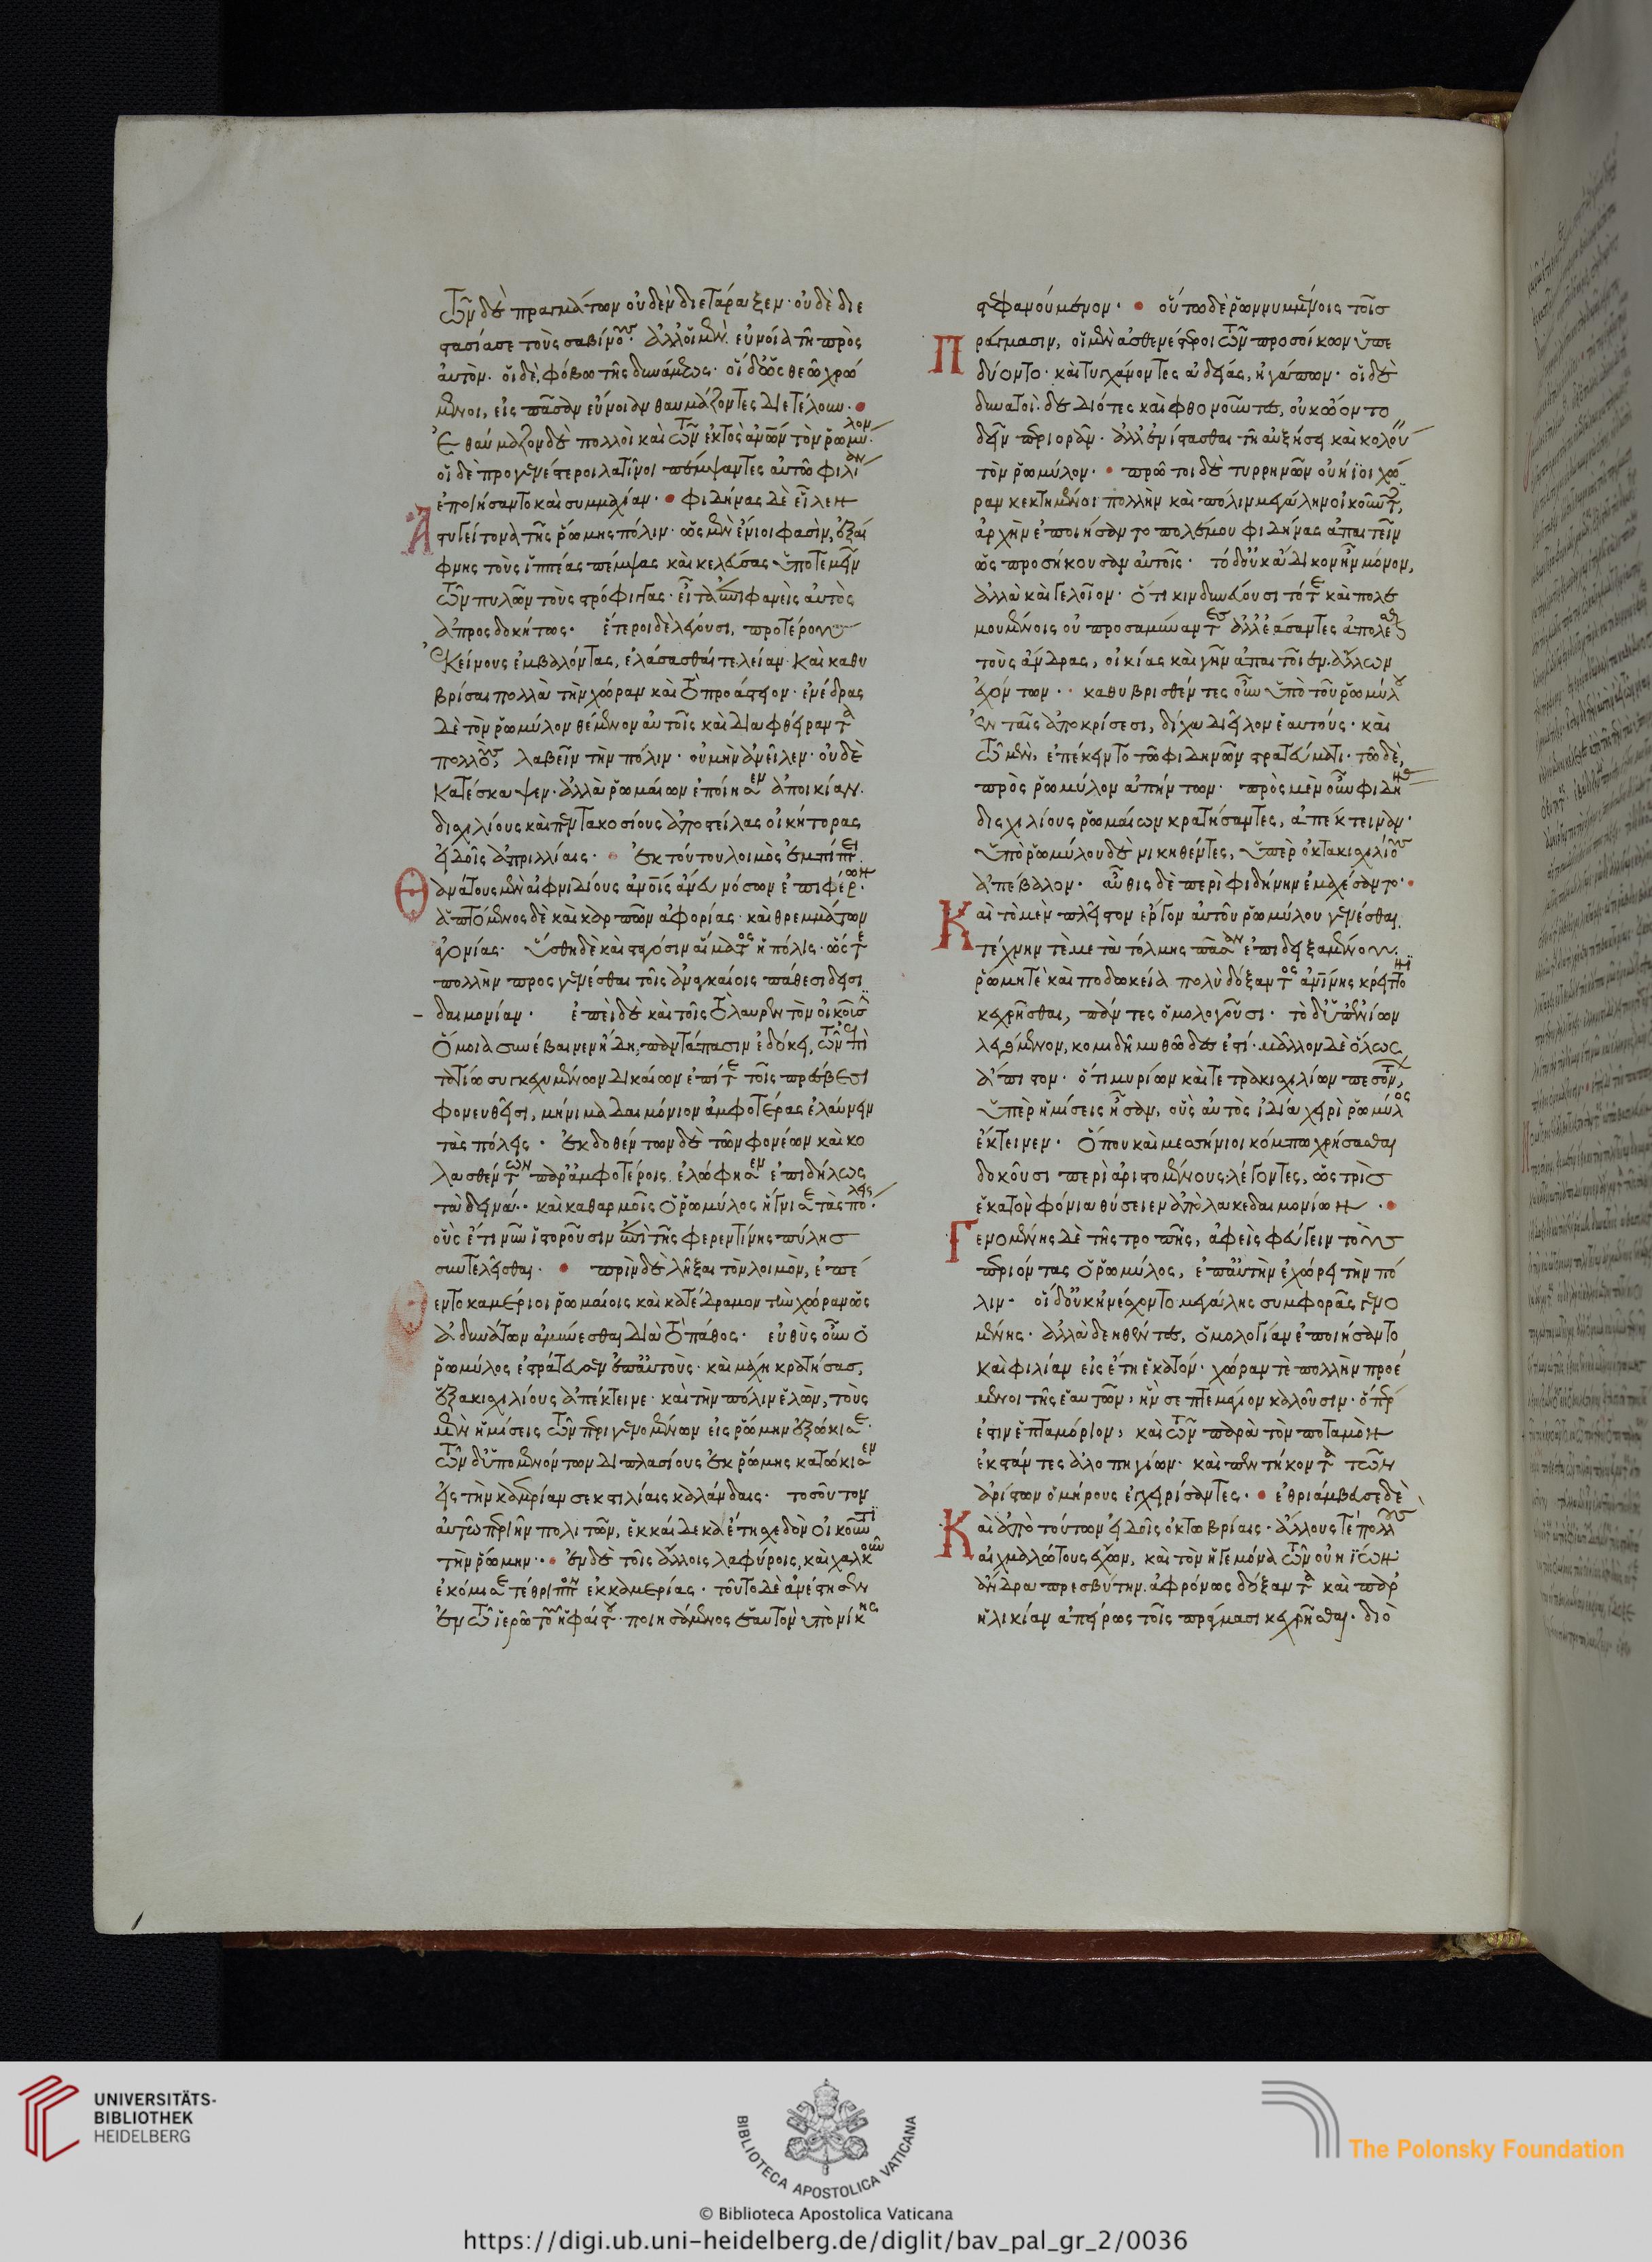 τῶν δὲ πραγμάτων οὐδὲν διετάραξεν· οὐδὲ διε
στασίασε τοὺς σαβίνους· ἀλλ' οἱ μὲν εὐνοία τῆ πρὸς
αὐτὸν· οἱ δὲ, φόβω τῆς δυνάμεως· οἱ δ' ὡς θεῶ χρώ
μενοι, εἰς πᾶσαν εὔνοιαν θαυμάζοντες διετέλουν·
Ἐθαύμαζον δὲ πολλοὶ καὶ τῶν ἐκτὸς ἀνων τὸν ῥωμύλον·
οἱ δὲ προγενέστεροι λατῖνοι πέμψαντες αὐτῶ φιλίαν
ἐποιήσαντο καὶ συμμαχίαν· φιδήνας δὲ εἷλεν
Ἀστυγείτονα τῆς ῥώμης πόλιν· ὡς μὲν ἔνιοι φασὶν, ἐξαί
φνης τοὺς ἱππέας πέμψας καὶ κελεύσας ὑποτεμεῖν
τῶν πυλῶν τοὺς στρόφιγγας· εἶτα ἐπιφανεὶς αὐτὸς
ἀπροσδοκήτως· ἕτεροι δὲ λέγουσι, προτέρους
Ἐκείνους ἐμβαλόντας, ἐλάσασθαί τε λείαν· Καὶ καθυ
βρίσαι πολλὰ τὴν χώραν καὶ τὸ προάστειον· ἐνέδρας
δὲ τὸν ῥωμύλον θέμενον αὐτοῖς καὶ διαφθείραντα
πολλοὺς, λαβεῖν τὴν πόλιν· οὐ μὴν ἀνεῖλεν· οὐδὲ
Κατέσκαψεν· ἀλλὰ ῥωμαίων ἐποίησεν ἀποικίαν·
δισχιλίους καὶ πεντακοσίους ἀποστείλας οἰκήτορας
εἰδοῖς ἀπριλλίαις· ἐκ τούτου λοιμὸς ἐμπίπτει
Θανάτους μὲν αἰφνιδίους ἀνοις ἄνευ νόσων ἐπιφέρων·
ἁπτόμενος δὲ καὶ καρπῶν ἀφορίας· καὶ θρεμμάτων
ἀγονίας· ὕσθη δὲ καὶ σταγόσιν αἵματος ἡ πόλις· ὥστε
πολλὴν προσγενέσθαι τοῖς ἀναγκαίοις πάθεσι δεισι
δαιμονίαν· ἐπεὶ δὲ καὶ τοῖς τὸ λαυρεντὸν οἰκοῦσιν
Ὅμοια συνέβαινεν ἤδη, παντάπασιν ἐδόκει, τῶν ἐπὶ
τατίω συγκεχυμένων δικαίων ἐπί τε τοῖς πρέσβεσι
φονευθεῖσι, μήνιμα δαιμόνιον ἀμφοτέρας ἐλαύνειν
τὰς πόλεις· ἐκδοθέντων δὲ τῶν φονέων καὶ κο
λασθέντων παρ' ἀμφοτέροις ἐλώφησεν ἐπιδήλως
τὰ δεινά· καὶ καθαρμοῖς ὁ ῥωμύλος ἥγνισε τὰς πόλεις·
οὓς ἔτι νῦν ἱστοροῦσιν ἐπὶ τῆς φερεντίνης πύλης
συντελεῖσθαι· πρὶν δὲ λῆξαι τὸν λοιμὸν, ἐπέ
Θεντο καμέριοι ῥωμαίοις καὶ κατέδραμον τὴν χώραν ὡς
ἀδυνάτων ἀμύνεσθαι διὰ τὸ πάθος· εὐθὺς οὖν ὁ
ῥωμύλος ἐστράτευσεν ἐπ' αὐτοὺς· καὶ μάχη κρατήσας,
ἑξακισχιλίους ἀπέκτεινε· καὶ τὴν πόλιν ἑλὼν, τοὺς
μὲν ἡμίσεις τῶν περιγενομένων εἰς ῥώμην ἐξώκισε·
τῶν δ' ὑπομενόντων διπλασίους ἐκ ῥώμης κατώκισεν
εἰς τὴν καμερίαν σεκστιλίαις καλάνδαις· τοσοῦτον
αὐτῶ περιῆν πολιτῶν, ἑκκαίδεκα ἔτη σχεδὸν οἰκοῦντι
τὴν ῥώμην· ἐν δὲ τοῖς ἄλλοις λαφύροις, καὶ χαλκοῦν
ἐκόμισε τέθριππον ἐκ καμερίας· τοῦτο δὲ ἀνέστησεν
ἐν τῶ ἱερῶ τοῦ ἡφαίστου· ποιησάμενος ἑαυτὸν ὑπὸ νίκης
στεφανούμενον· οὕτω δὲ ῥωννυμένοις τοῖς
Πράγμασιν, οἱ μὲν ἀσθενέστεροι τῶν προσοίκων ὑπε
δύοντο· καὶ τυγχάνοντες ἀδείας, ἠγάπων· οἱ δὲ
δυνατοὶ· δεδιότες καὶ φθονοῦντες, οὐκ ὤοντο
δεῖν περιορᾶν· ἀλλ' ἐνίστασθαι τῆ αὐξήσει καὶ κολούειν
τὸν ῥωμύλον· πρῶτοι δὲ τυρρηνῶν οὐήϊοι χώ
ραν κεκτημένοι πολλὴν καὶ πόλιν μεγάλην οἰκοῦντες,
ἀρχὴν ἐποιήσαντο πολέμου φιδήνας ἀπαιτεῖν
ὡς προσήκουσαν αὐτοῖς· τὸ δ' οὐκ ἄδικον ἦν μόνον,
ἀλλὰ καὶ γελοῖον· ὅτι κινδυνεύουσι τότε καὶ πολε
μουμένοις οὐ προσαμύναντες ἀλλ' ἐάσαντες ἀπολέσθαι
τοὺς ἄνδρας, οἰκίας καὶ γῆν ἀπαιτοῖεν ἄλλων
ἐχόντων· καθυβρισθέντες οὖν ὑπὸ τοῦ ῥωμύλου
ἐν ταῖς ἀποκρίσεσι, δίχα διεῖλον ἑαυτούς· καὶ
τῶ μὲν, ἐπέκειντο τῶ φιδηνῶν στρατεύματι· τῶ δὲ,
πρὸς ῥωμύλον ἀπήντων· πρὸς μὲν οὖν φιδήνας
δισχιλίους ῥωμαίων κρατήσαντες, ἀπέκτειναν·
Ὑπὸ ῥωμύλου δὲ νικηθέντες, ὑπὲρ ὀκτακισχιλίους
ἀπέβαλον· αὖθις δὲ περὶ φιδήνην ἐμαχέσαντο·
Καὶ τὸ μὲν πλεῖστον ἔργον αὐτοῦ ῥωμύλου γενέσθαι
τέχνην τὲ μετὰ τόλμης πᾶσαν ἐπιδειξαμένου·
ῥώμη τὲ καὶ ποδωκεία πολὺ δόξαντος ἀνίνης κρείττονι
κεχρῆσθαι, πάντες ὁμολογοῦσι· τὸ δ' ὑπ' ἐνίων
λεγόμενον, κομιδῆ μυθῶδες ἐστί· μᾶλλον δὲ ὅλως
ἄπιστον· ὅτι μυρίων καὶ τετρακισχιλίων πεσόντων,
Ὑπὲρ ἡμίσεις ἦσαν, οὓς αὐτὸς ἰδία χειρὶ ῥωμύλος
ἔκτεινεν· Ὅπου καὶ μεσσήνιοι κόμπω χρήσασθαι
δοκοῦσι περὶ ἀριστομένους λέγοντες, ὡς τρὶς
ἑκατομφόνια θύσειεν ἀπὸ λακεδαιμονίων·
Γενομένης δὲ τῆς τροπῆς, ἀφεὶς φεύγειν τοὺς
περιόντας ὁ ῥωμύλος, ἐπ' αὐτὴν ἐχώρει τὴν πό
λιν· οἱ δ' οὐκ ἠνέσχοντο μεγάλης συμφορᾶς γενο
μένης· ἀλλὰ δεηθέντες, ὁμολογίαν ἐποιήσαντο
καὶ φιλίαν εἰς ἔτη ἑκατόν· χώραν τὲ πολλὴν προέ
μενοι τῆς ἑαυτῶν, ἣν σεπτεμαίον καλοῦσιν· ὅπερ
ἐστιν ἑπταμόριον, καὶ τῶν παρὰ τὸν ποταμὸν
ἐκστάντες ἁλοπηγίων· καὶ πεντήκοντα τῶν
ἀρίστων ὁμήρους ἐγχειρίσαντες· ἐθριάμβευσε δὲ
Καὶ ἀπὸ τούτων εἰδοῖς ὀκτωβρίαις· ἄλλους τὲ πολλοὺς
αἰχμαλώτους ἔχων, καὶ τὸν ἡγεμόνα τῶν οὐηϊέων
ἄνδρα πρεσβύτην, ἀφρόνως δόξαντα καὶ παρ'
ἡλικίαν ἀπείρως τοῖς πράγμασι κεχρῆσθαι· διὸ
UNIVERSITÄTS-
BIBLIOTHEK
HEIDELBERG
BIBLIOTECA APOSTOLICA VATICANA
The Polonsky Foundation
© Biblioteca Apostolica Vaticana
https://digi.ub.uni-heidelberg.de/diglit/bav_pal_gr_2/0036